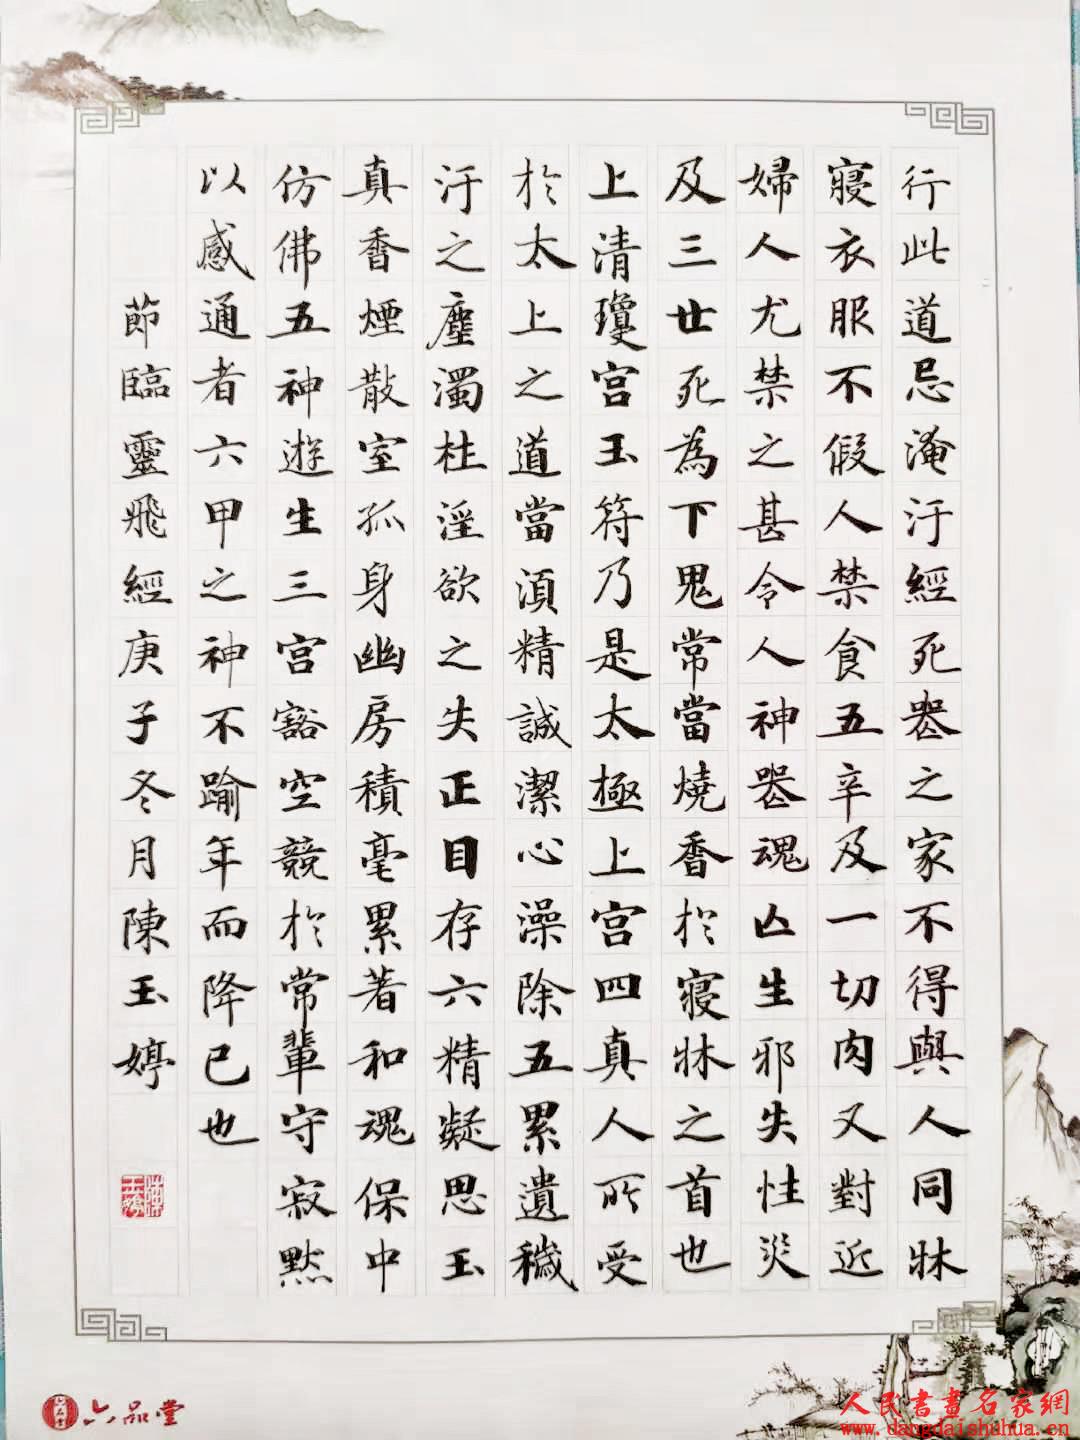 行此道忌淹汙經死喪之家不得與人同牀
寢衣服不假人禁食五辛及一切肉又對近
婦人尤禁之甚令人神喪魂亾生邪失性災
及三世死為下鬼常當燒香於寢牀之首也
上清瓊宮玉符乃是太極上宮四真人所受
於太上之道當湏精誠潔心澡除五累遺穢
汙之塵濁杜淫欲之失正目存六精凝思玉
真香煙散室孤身幽房積毫累著和魂保中
仿佛五神遊生三宮豁空競於常輩守寂默
以感通者六甲之神不踰年而降已也
節臨靈飛經庚子冬月陳玉婷
陳玉婷
六品堂
人民書畫名家網
www.dangdaishuhua.cn